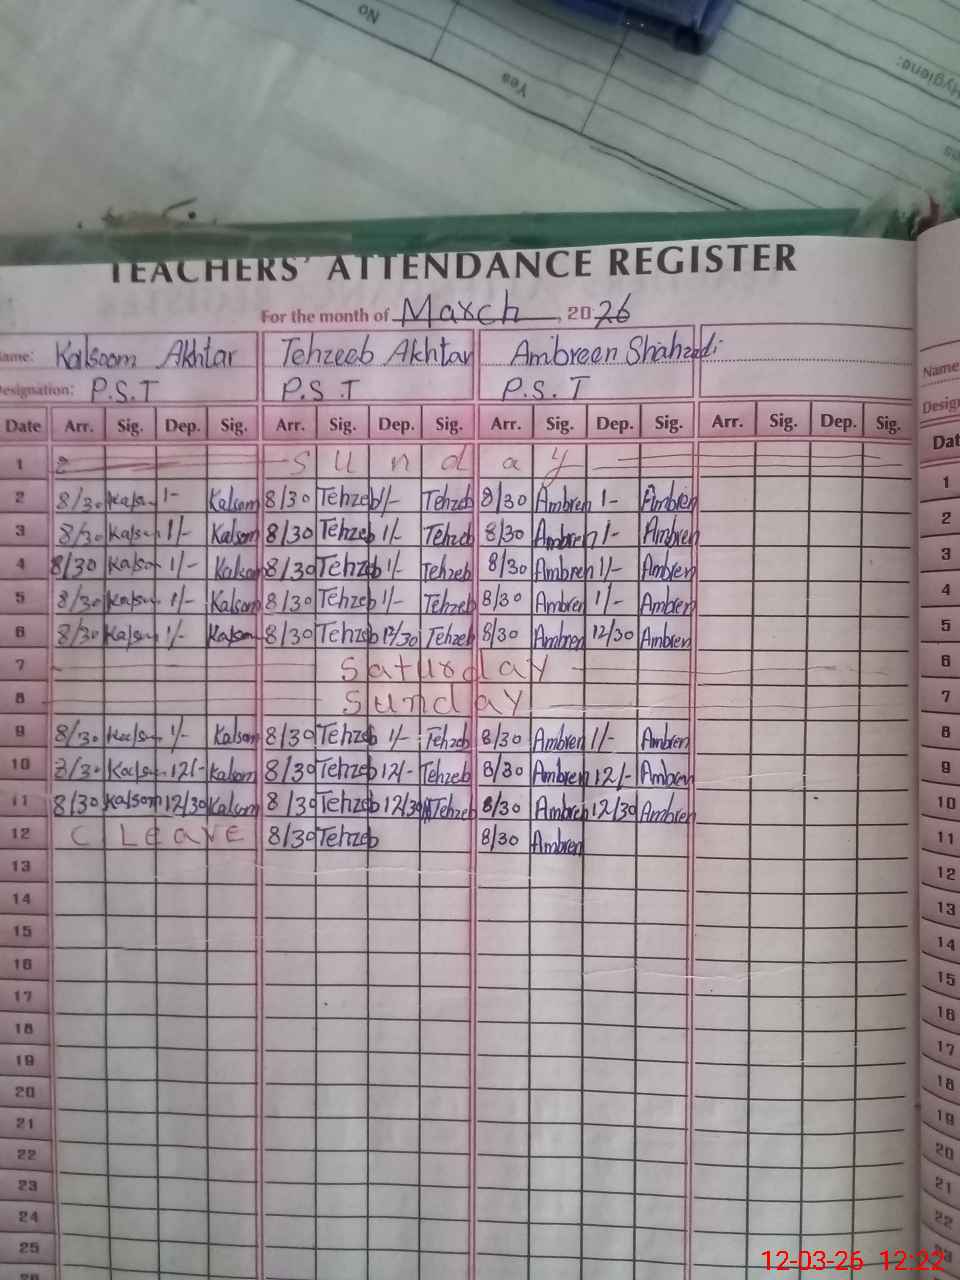 No
Yes
Hygiene:
TEACHERS' ATTENDANCE REGISTER
For the month of March, 2026
Name: Kalsoom Akhtar Tehzeeb Akhtar Ambreen Shahzadi
Designation: P.S.T P.S.T P.S.T
Date Arr. Sig. Dep. Sig. Arr. Sig. Dep. Sig. Arr. Sig. Dep. Sig. Arr. Sig. Dep. Sig.
1 Sunday
2 8/30 Kalsm 1- Kalsom 8/30 Tehzeb 1/- Tehzeb 8/30 Ambren 1- Ambren
3 8/30 Kalsm 1/- Kalsom 8/30 Tehzeb 1/- Tehzeb 8/30 Ambren 1- Ambren
4 8/30 Kalsm 1/- Kalsom 8/30 Tehzeb 1/- Tehzeb 8/30 Ambren 1/- Ambren
5 8/30 Kalsm 1/- Kalsom 8/30 Tehzeb 1/- Tehzeb 8/30 Ambren 1/- Ambren
6 8/30 Kalsm 1/- Kalsom 8/30 Tehzeb 12/30 Tehzeb 8/30 Ambren 12/30 Ambren
7 Saturday
8 Sunday
9 8/30 Kalsm 1/- Kalsom 8/30 Tehzeb 1/- Tehzeb 8/30 Ambren 1/- Ambren
10 8/30 Kalsm 12/- Kalsom 8/30 Tehzeb 12/- Tehzeb 8/30 Ambren 12/- Ambren
11 8/30 Kalsom 12/30 Kalsom 8/30 Tehzeb 12/30 Tehzeb 8/30 Ambren 12/30 Ambren
12 C Leave 8/30 Tehzeb 8/30 Ambren
13
14
15
16
17
18
19
20
21
22
23
24
25
Name
Desig
Dat
1
2
3
4
5
6
7
8
9
10
11
12
13
14
15
16
17
18
19
20
21
22
12-03-26 12:22